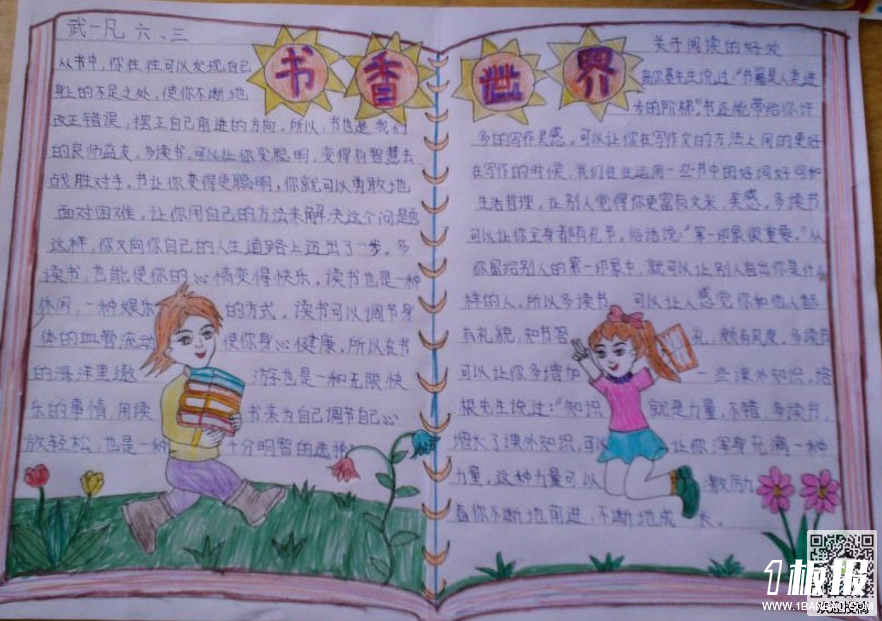 武一凡 六、三
书香世界
从书中，你往往可以发现自己
身上的不足之处，使你不断地
改正错误，摆正自己前进的方向，所以，书也是我们
的良师益友，多读书，可以让你变聪明，变得有智慧去
战胜对手，书让你变得更聪明，你就可以勇敢地
面对困难，让你用自己的方法来解决这个问题
这样，你又向你自己的人生道路上迈出了一步。多
读书，也能使你的心情变得快乐，读书也是一种
休闲，一种娱乐的方式，读书可以调节身
体的血管流动使你身心健康，所以在书
的海洋里遨游也是一种无限快
乐的事情，用读书来为自己调节自己心
放轻松，也是一种十分明智的选择
关于阅读的好处
高尔基先生说过：“书籍是人类进
步的阶梯。”书还能带给你许
多的写作灵感，可以让你在写作文的方法上用的更好
在写作的时候，我们往往运用一些书中的好词好句和
生活哲理，让别人觉得你更富有文采，美感，多读书
可以让你全身都有礼节，俗话说：“第一印象很重要。”从
你留给别人的第一印象中，就可以让别人看出你是什么
样的人，所以多读书 可以让人感觉你和他人都
有礼貌，知书答礼，颇有风度，多读书
可以让你多增加一些课外知识，培
根先生说过：“知识就是力量，不错，多读书，
增长了课外知识，可以让你浑身充满一种
力量，这种力量可以激励
着你不断地前进，不断地成长。
1板报
WWW.1BANBAO.COM